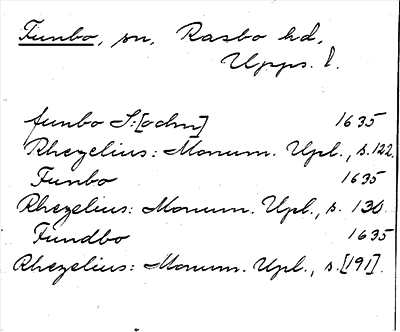 Funbo, sn, Rasbo hd,
Upps. l.
funbo S:[ochn] 1635
Rhezelius: Monum. Upl., s. 122.
Funbo 1635
Rhezelius: Monum. Upl., s. 130.
Fundbo 1635
Rhezelius: Monum. Upl., s. [191].